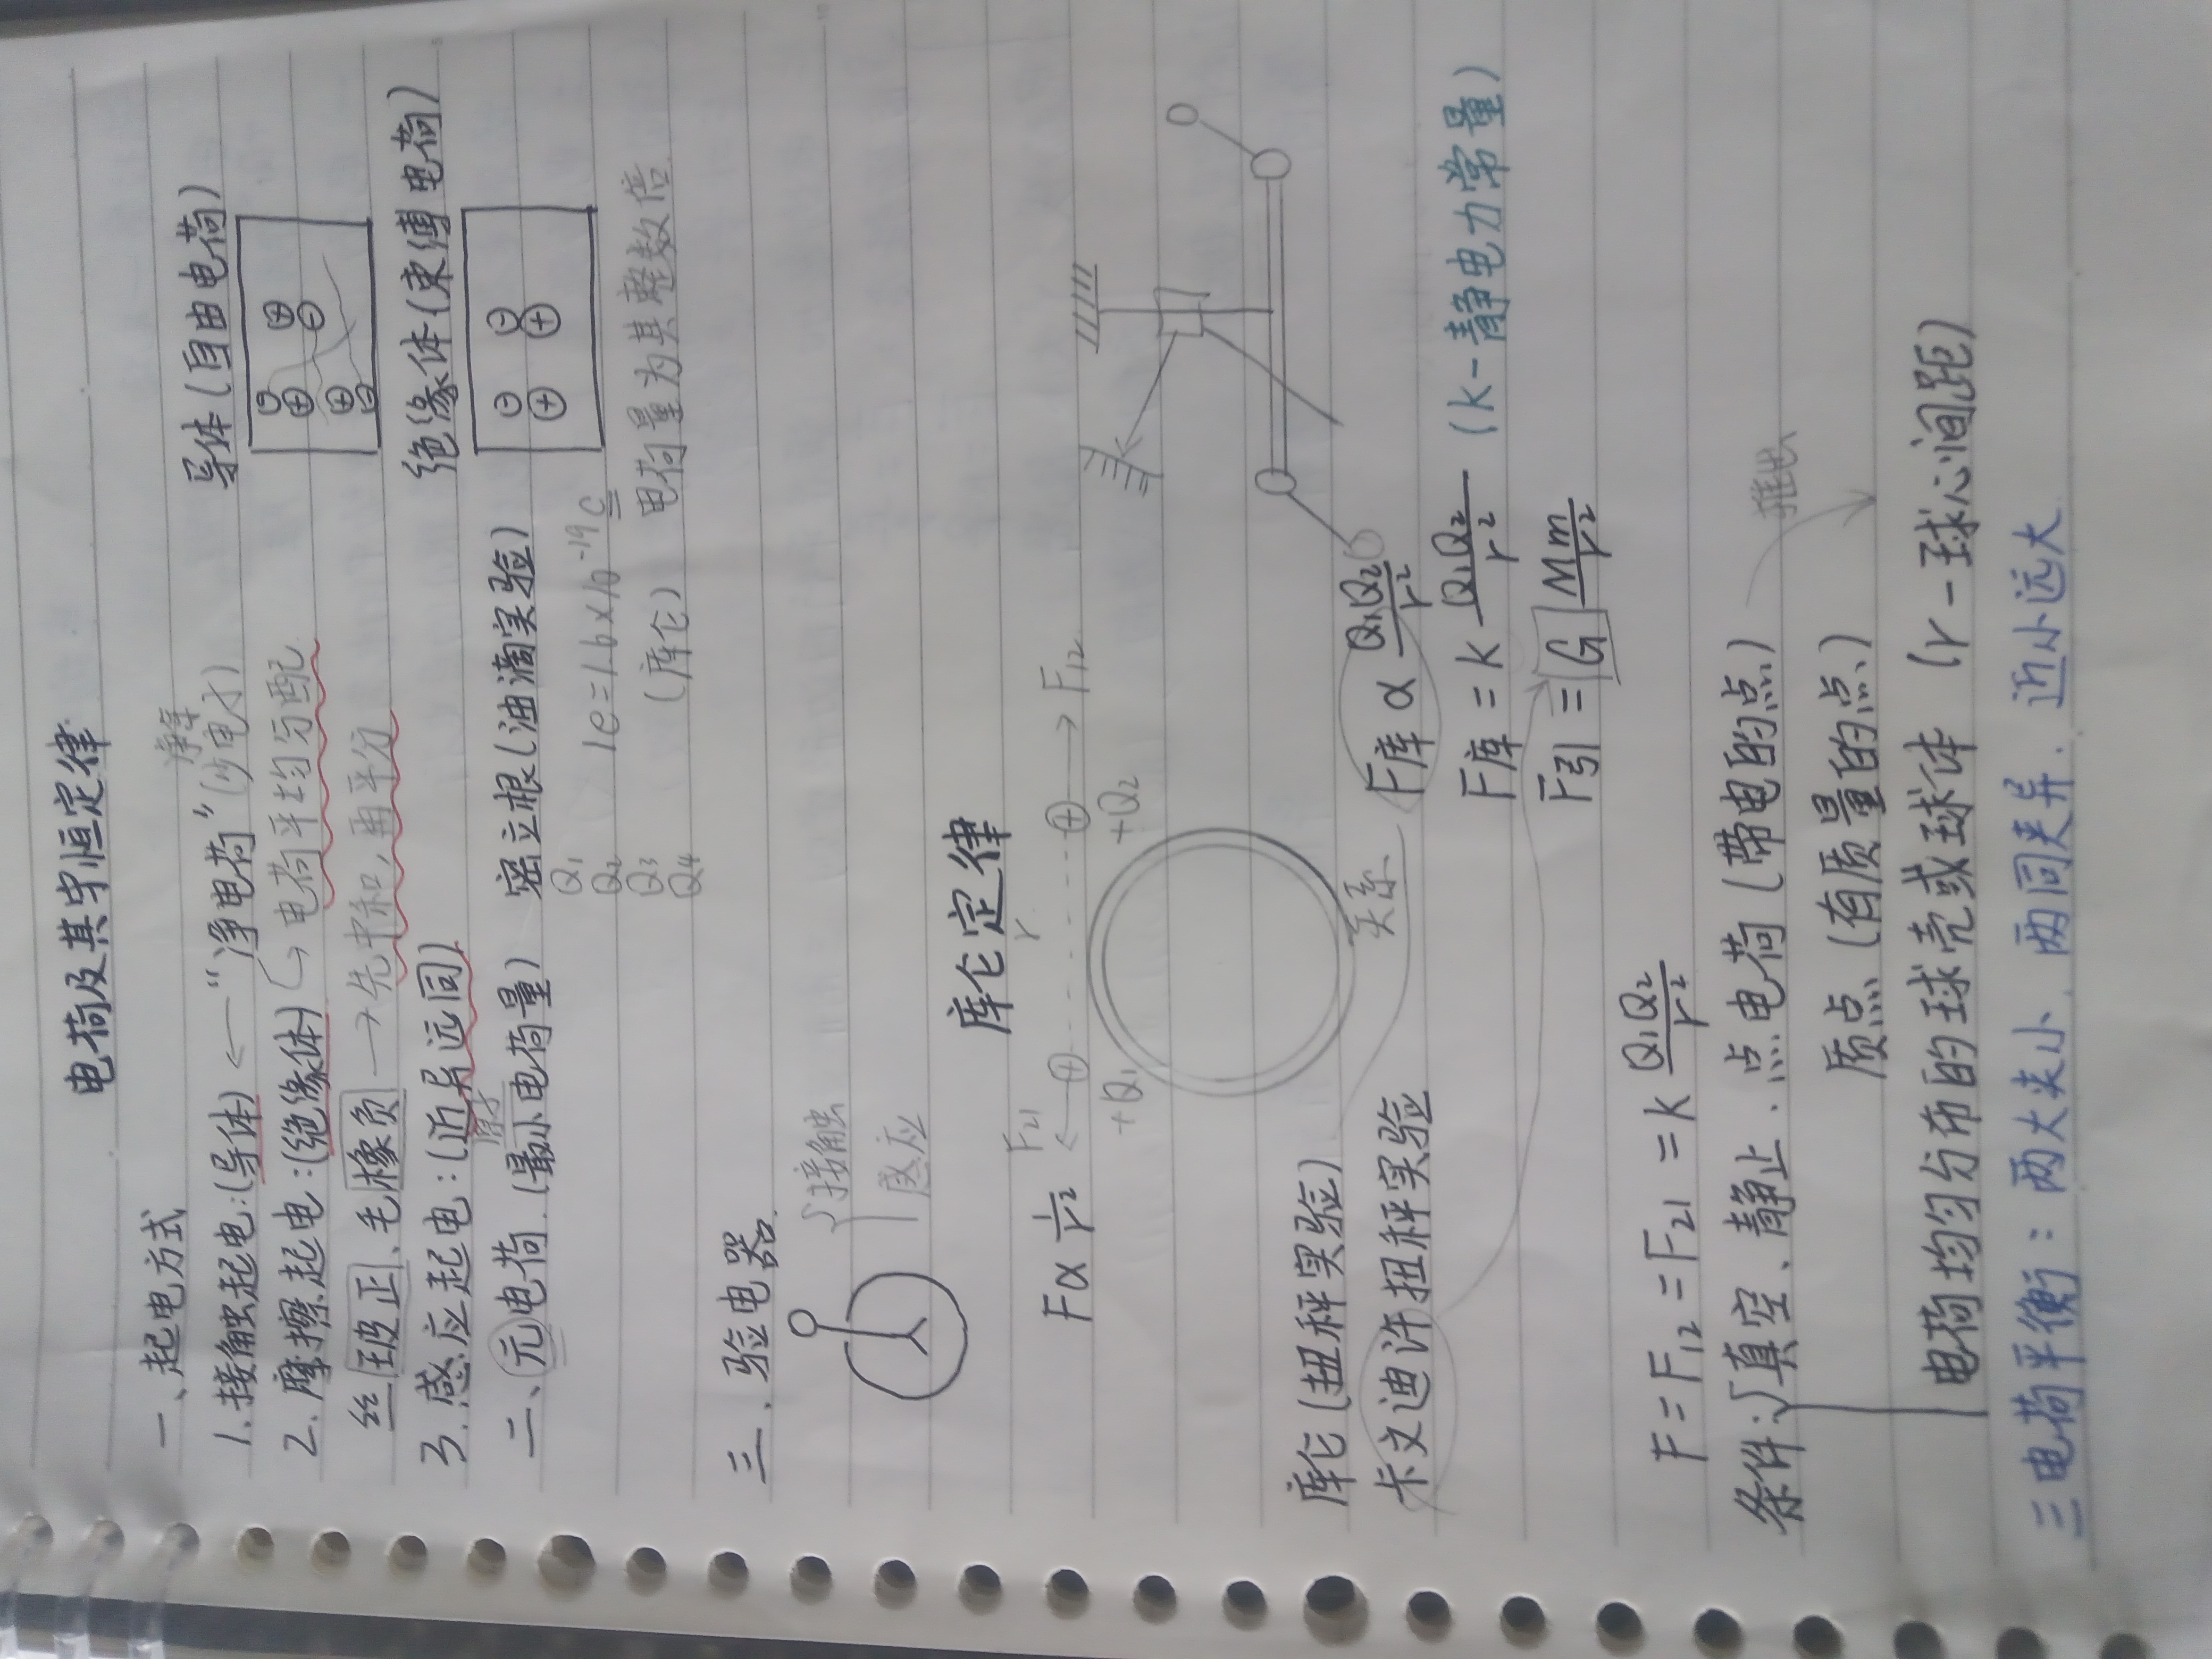 电荷及其守恒定律
一、起电方式
1.接触起电:(导体) ←“净电荷”
导体(自由电荷)
2.摩擦起电:(绝缘体) ↳电荷平均分配
丝玻正、毛橡负 →先中和,再平分
3.感应起电:(近异远同)
绝缘体(束缚电荷)
二、元电荷.(最小电荷量) 密立根(油滴实验)
Q₁
Q₂ 1e=1.6×10⁻¹⁹C
Q₃ (库仑) 电荷量为其整数倍
Q₄
三.验电器
接触
感应
库仑定律
F∝1/r²
F₂₁ ← ⊕ r ⊕ → F₁₂
+Q₁ +Q₂
库仑(扭秤实验)
卡文迪许扭秤实验
关系
F库 ∝ Q₁Q₂/r²
F库 = k Q₁Q₂/r² (k-静电力常量)
F引 = G Mm/r²
F=F₁₂=F₂₁=k Q₁Q₂/r²
条件:真空、静止.点电荷(带电的点)
质点(有质量的点) 推出
电荷均匀分布的球壳或球体 (r-球心间距)
三电荷平衡:两大夹小.两同夹异.近小远大